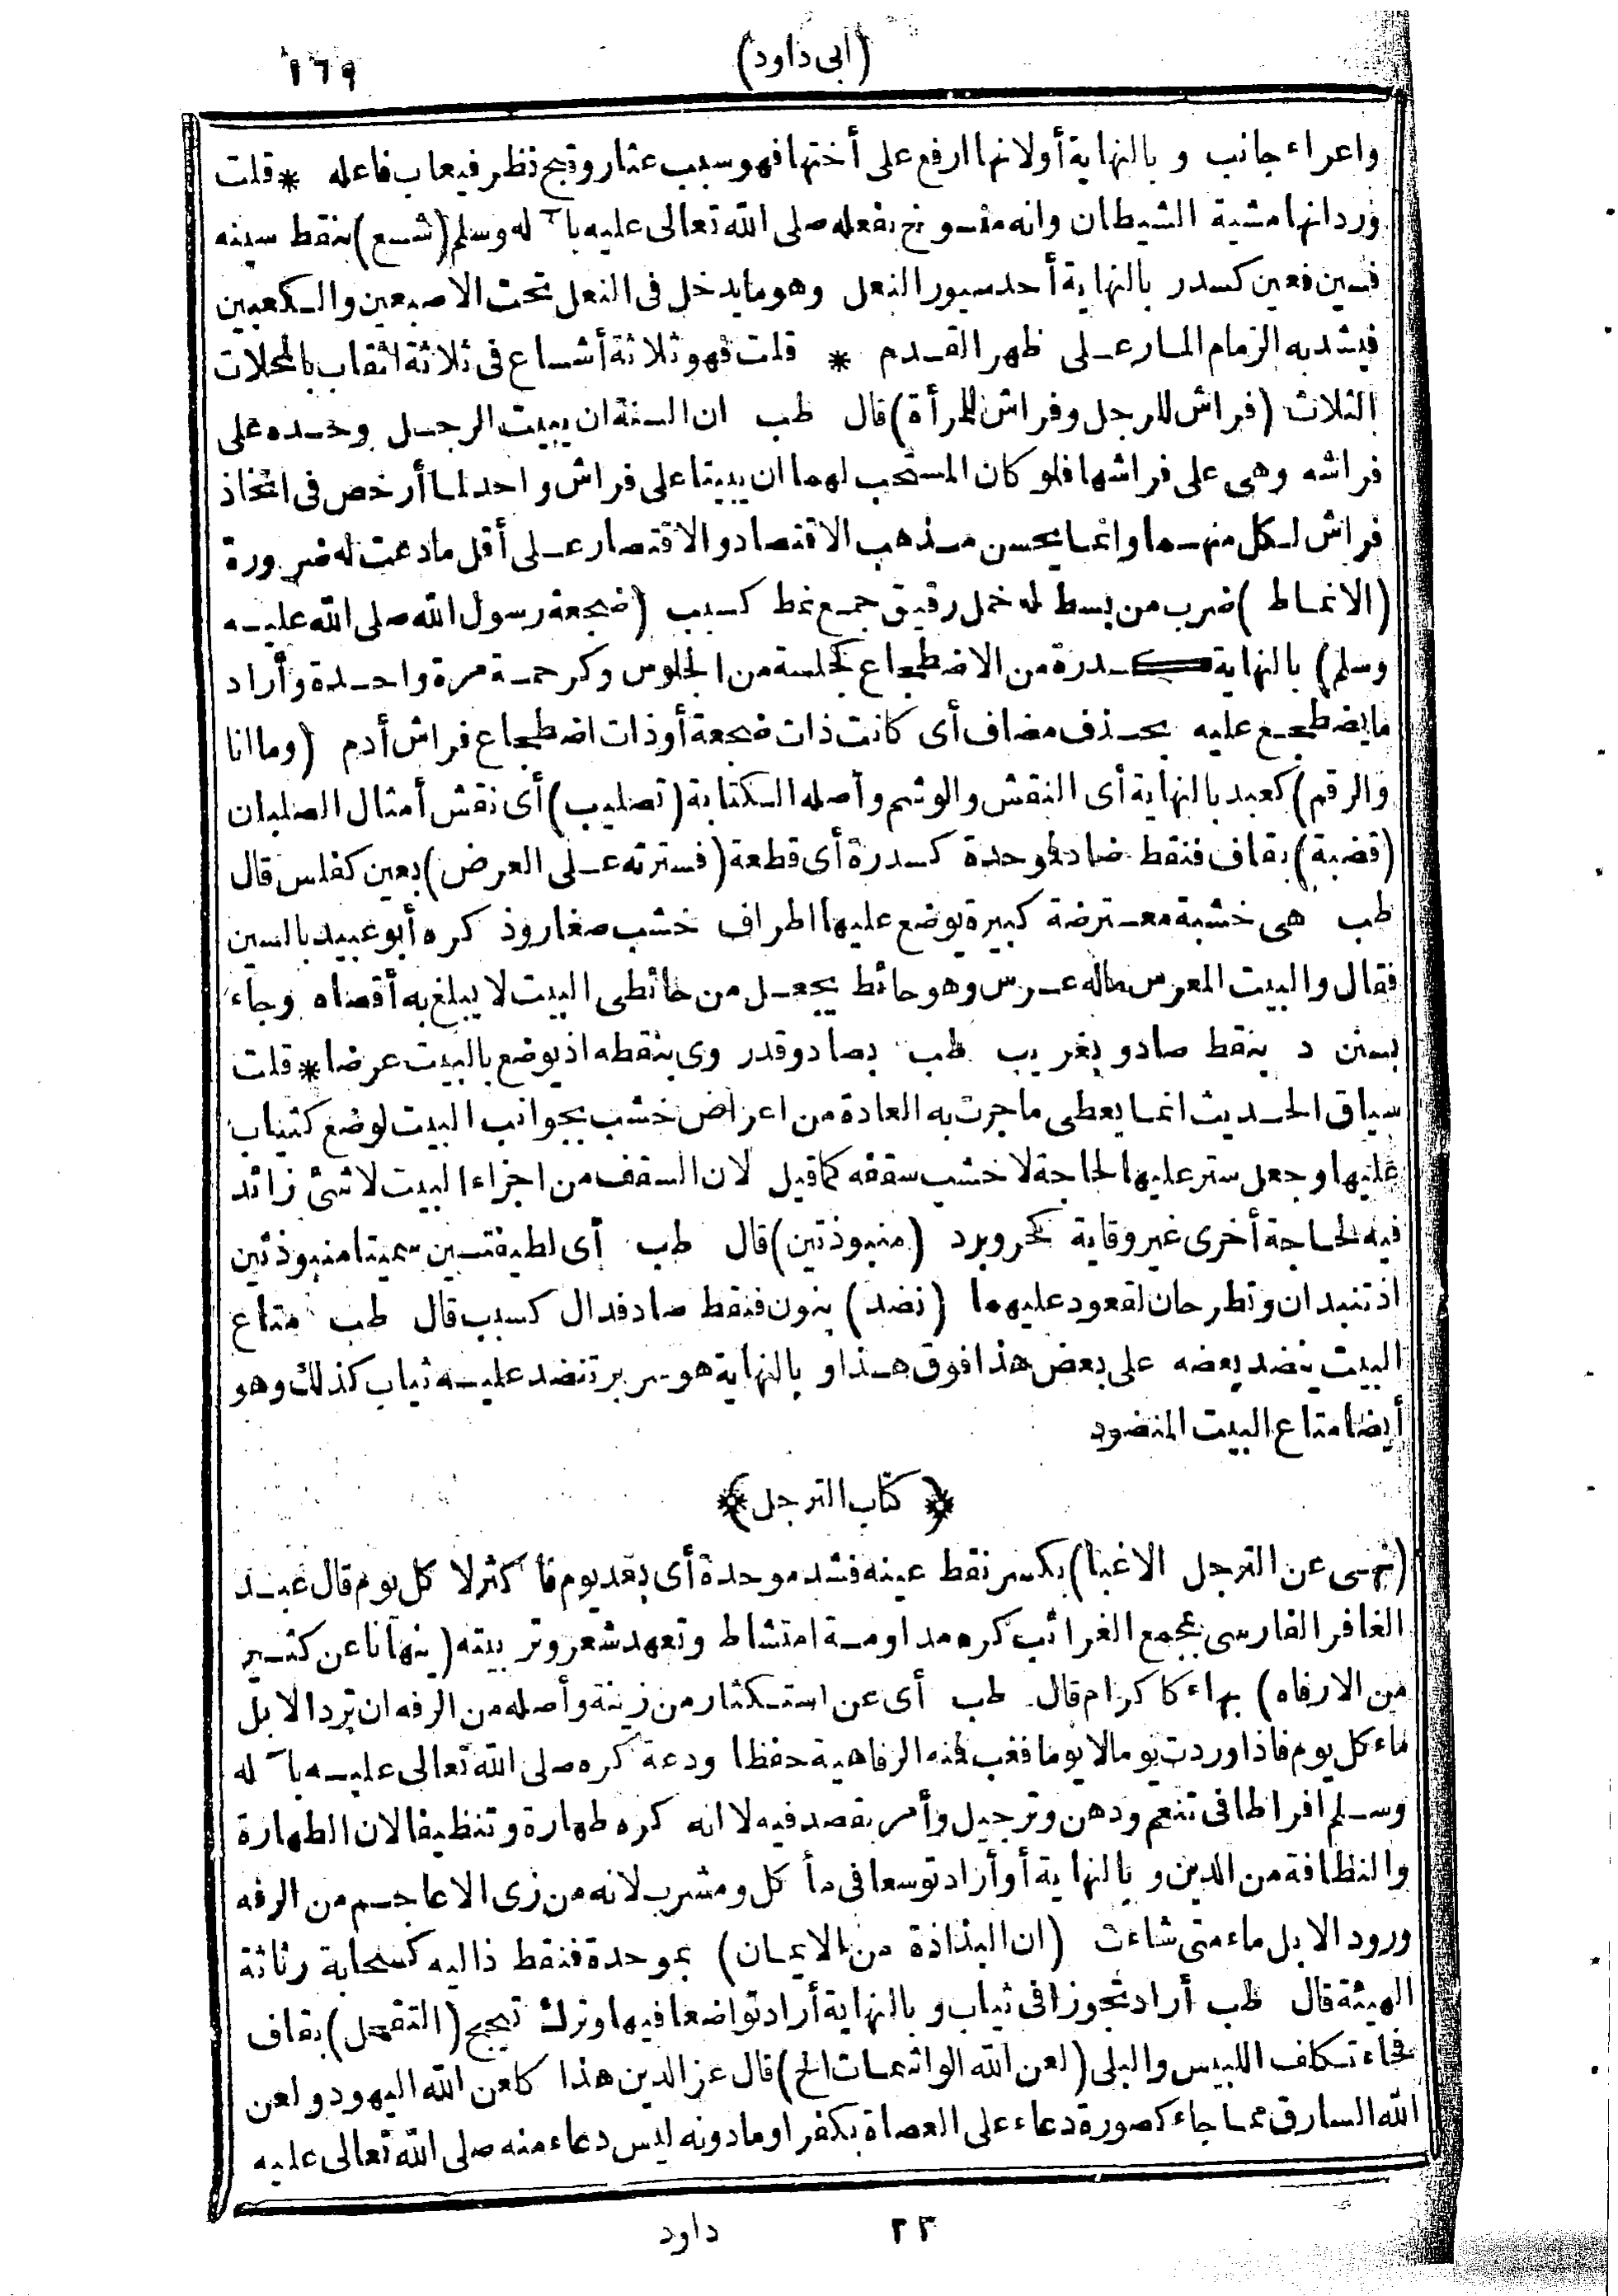 (أبى داود) ١٦٩
واعراء جانب وبالنهاية أولانها ارفع على أختها فهو سبب عثار وقبح نظر فيعاب فاعله * قلت
وردانها مشية الشيطان وانه منسوخ بفعله صلى الله تعالى عليه بآله وسلم (شسع) بنقط سينه
فسين فعين كسدر بالنهاية أحد سيور النعل وهو ما يدخل فى النعل تحت الاصبعين والكعبين
فيشد به الزمام المار على ظهر القدم * قلت فهو ثلاثة أشساع فى ثلاثة اثقاب بالمحلات
الثلاث (فراش للرجل وفراش للمرأة) قال طب ان السنة ان يبيت الرجل وحده على
فراشه وهى على فراشها فلو كان المستحب لهما ان يبيتا على فراش واحد لما أرخص فى اتخاذ
فراش لكل منهما وانما يحسن مذهب الاقتصاد والاقتصار على أقل ما دعت له ضرورة
(الانماط) ضرب من بسط له خمل رقيق جمع نمط كسبب (ضجعة رسول الله صلى الله عليه
وسلم) بالنهاية كسدرة من الاضطجاع كجلسة من الجلوس وكرحمة مرة واحدة وأراد
ما يضطجع عليه بحذف مضاف أى كانت ذات ضجعة أو ذات اضطجاع فراش أدم (وما انا
والرقم) كعبد بالنهاية أى النقش والوشم وأصله الكتابة (تصليب) أى نقش أمثال الصلبان
(قضبة) بقاف فنقط ضاد فموحدة كسدرة أى قطعة (فسترته على العرض) بعين كفلس قال
طب هى خشبة معترضة كبيرة يوضع عليها اطراف خشب صغار وذ كره أبو عبيد بالسين
فقال والبيت المعرس ماله عرس وهو حائط يجعل من حائطى البيت لا يبلغ به أقصاه وجاء
بسنن د بنقط صاد وبغريب طب بصاد وقد روى بنقطه اذ يوضع بالبيت عرضا * قلت
سياق الحديث انما يعطى ما جرت به العادة من اعراض خشب بجوانب البيت لوضع كثياب
عليها وجعل ستر عليها لحاجة لا خشب سقفه كما قيل لان السقف من اجزاء البيت لا شئ زائد
فيه لحاجة أخرى غير وقاية كحر وبرد (منبوذتين) قال طب أى لطيفتين سميتا منبوذتين
اذ تنبذان وتطرحان لقعود عليهما (نضد) بنون فنقط صاد فدال كسبب قال طب متاع
البيت ينضد بعضه على بعض هذا فوق هذا وبالنهاية هو سرير تنضد عليه ثياب كذلك وهو
أيضا متاع البيت المنضود
﴿كتاب الترجل﴾
(نهى عن الترجل الا غبا) بكسر نقط عينه فشد موحدة أى بعد يوم فأكثر لا كل يوم قال عبد
الغافر الفارسى بمجمع الغرائب كره مداومة امتشاط وتعهد شعر وتربيته (ينهانا عن كثير
من الارفاه) بهاء كاكرام قال طب أى عن استكثار من زينة وأصله من الرفه ان ترد الابل
ماء كل يوم فاذا وردت يوما لا يوما فغب فمنه الرفاهية حفظا ودعة كره صلى الله تعالى عليه بآله
وسلم افراطا فى تنعم ودهن وترجيل وأمر بقصد فيه لا انه كره طهارة وتنظيفا لان الطهارة
والنظافة من الدين وبالنهاية أو أراد توسعا فى مأكل ومشرب لانه من زى الاعاجم من الرفه
ورود الابل ماء متى شاءت (ان البذاذة من الايمان) بموحدة فنقط ذاليه كسحابة رثاثة
الهيئة قال طب أراد تجوزا فى ثياب وبالنهاية أراد تواضعا فيها وترك تبجح (التقحل) بقاف
فحاء تكلف اللبيس والبلى (لعن الله الواشمات الخ) قال عز الدين هذا كلعن الله اليهود ولعن
الله السارق مما جاء كصورة دعاء على العصاة بكفر او ما دونه ليس دعاء منه صلى الله تعالى عليه
٢٢ داود